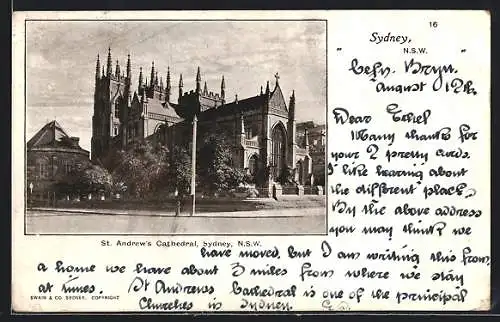 16
Sydney,
N.S.W.
" Cefn. Bryn. "
August 12th.
Dear Ethel
Many thanks for
your 2 pretty cards.
I like hearing about
the different places.
By the above address
you may think we
have moved, but I am writing this from
a home we have about 3 miles from where we stay
at times. St Andrews Cathedral is one of the principal
Churches in Sydney.
St. Andrew's Cathedral, Sydney, N.S.W.
SWAIN & CO. SYDNEY, COPYRIGHT